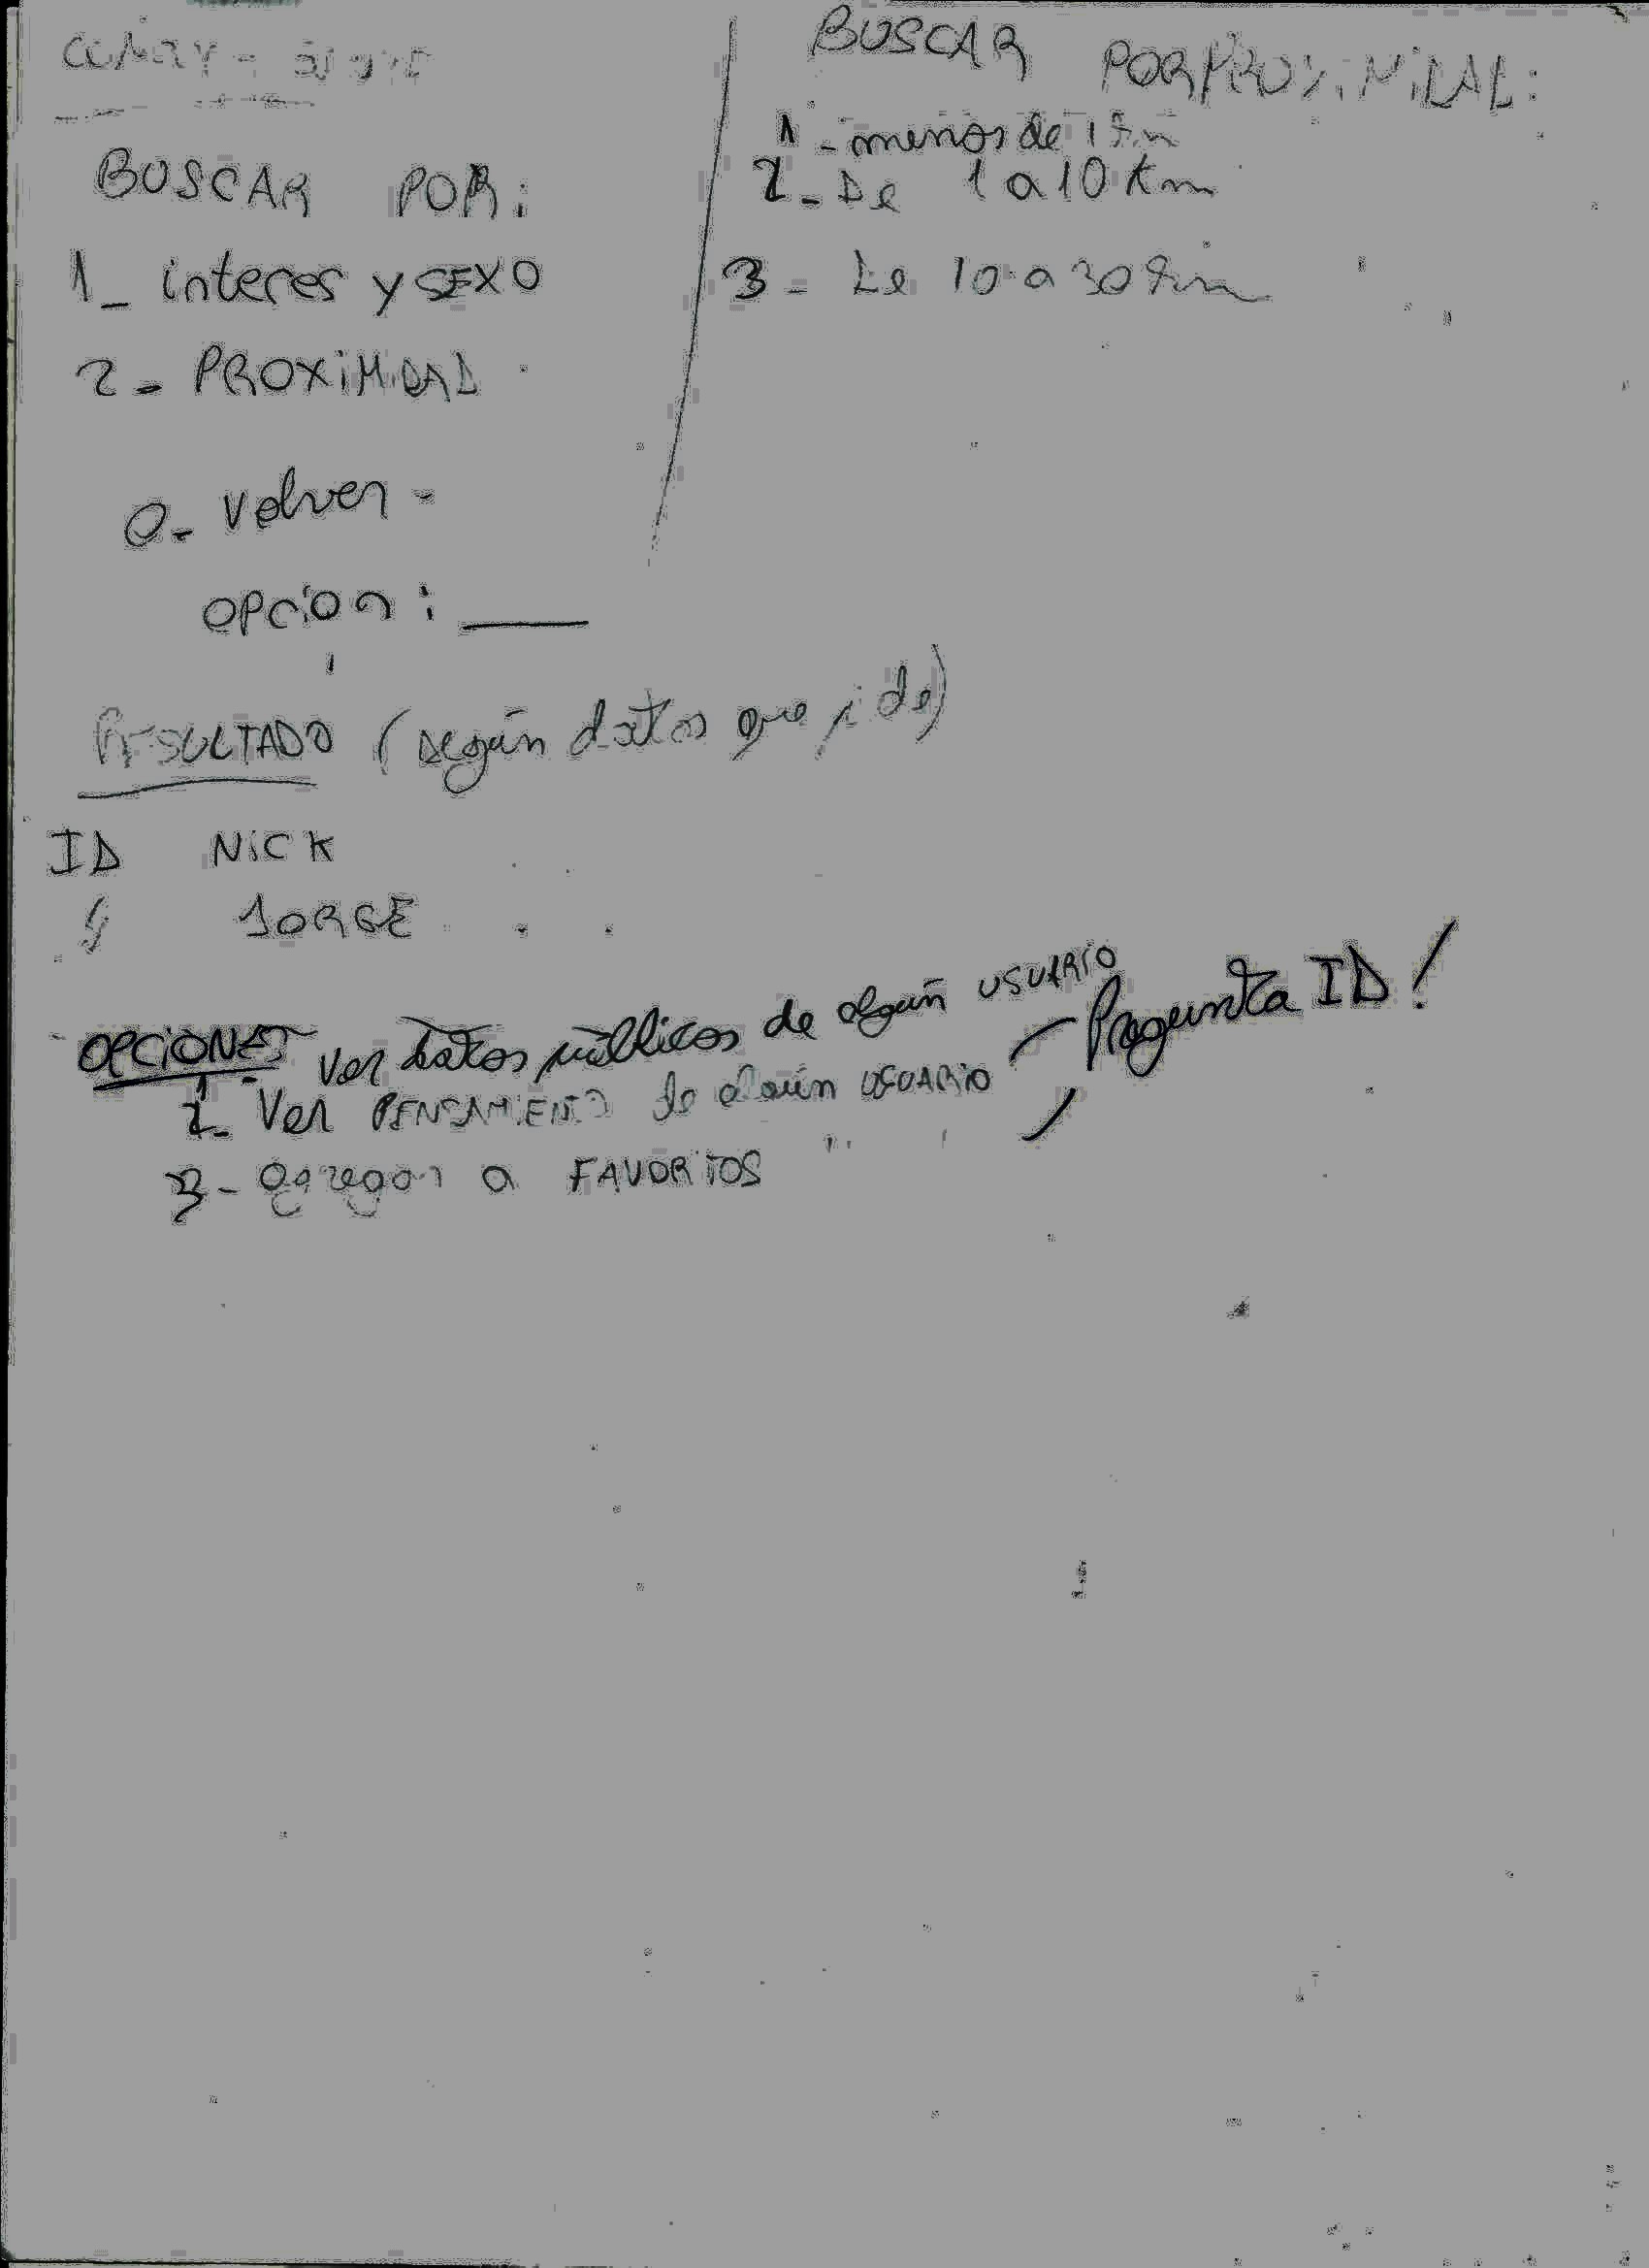 BUSCAR POR:
1_ interes y SEXO
2_ PROXIMIDAD
0_ volver -
OPCION: ___
BUSCAR POR PROXIMIDAD:
1 - menos de 1 km
2 - De 1 a 10 Km
3 - De 10 a 30 km
RESULTADO (según datos que pide)
ID NICK
JORGE . . .
OPCIONES
1 - Ver datos públicos de algún USUARIO
2 - Ver PENSAMIENTO de algún USUARIO
Pregunta ID!
3 - agregar a FAVORITOS " "